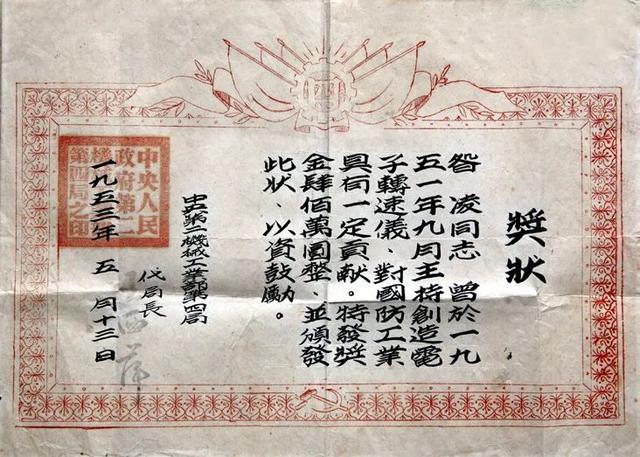 獎狀
昝 凌同志 曾於一九
五一年九月主持創造電
子轉速儀、對國防工業
具有一定貢献。特發獎
金肆佰萬圓整、並頒發
此狀、以資鼓勵。
第二機械工業部第四局
代局長
一九五三年 五 月十三日
中央人民
政府第二
機
第四局之印